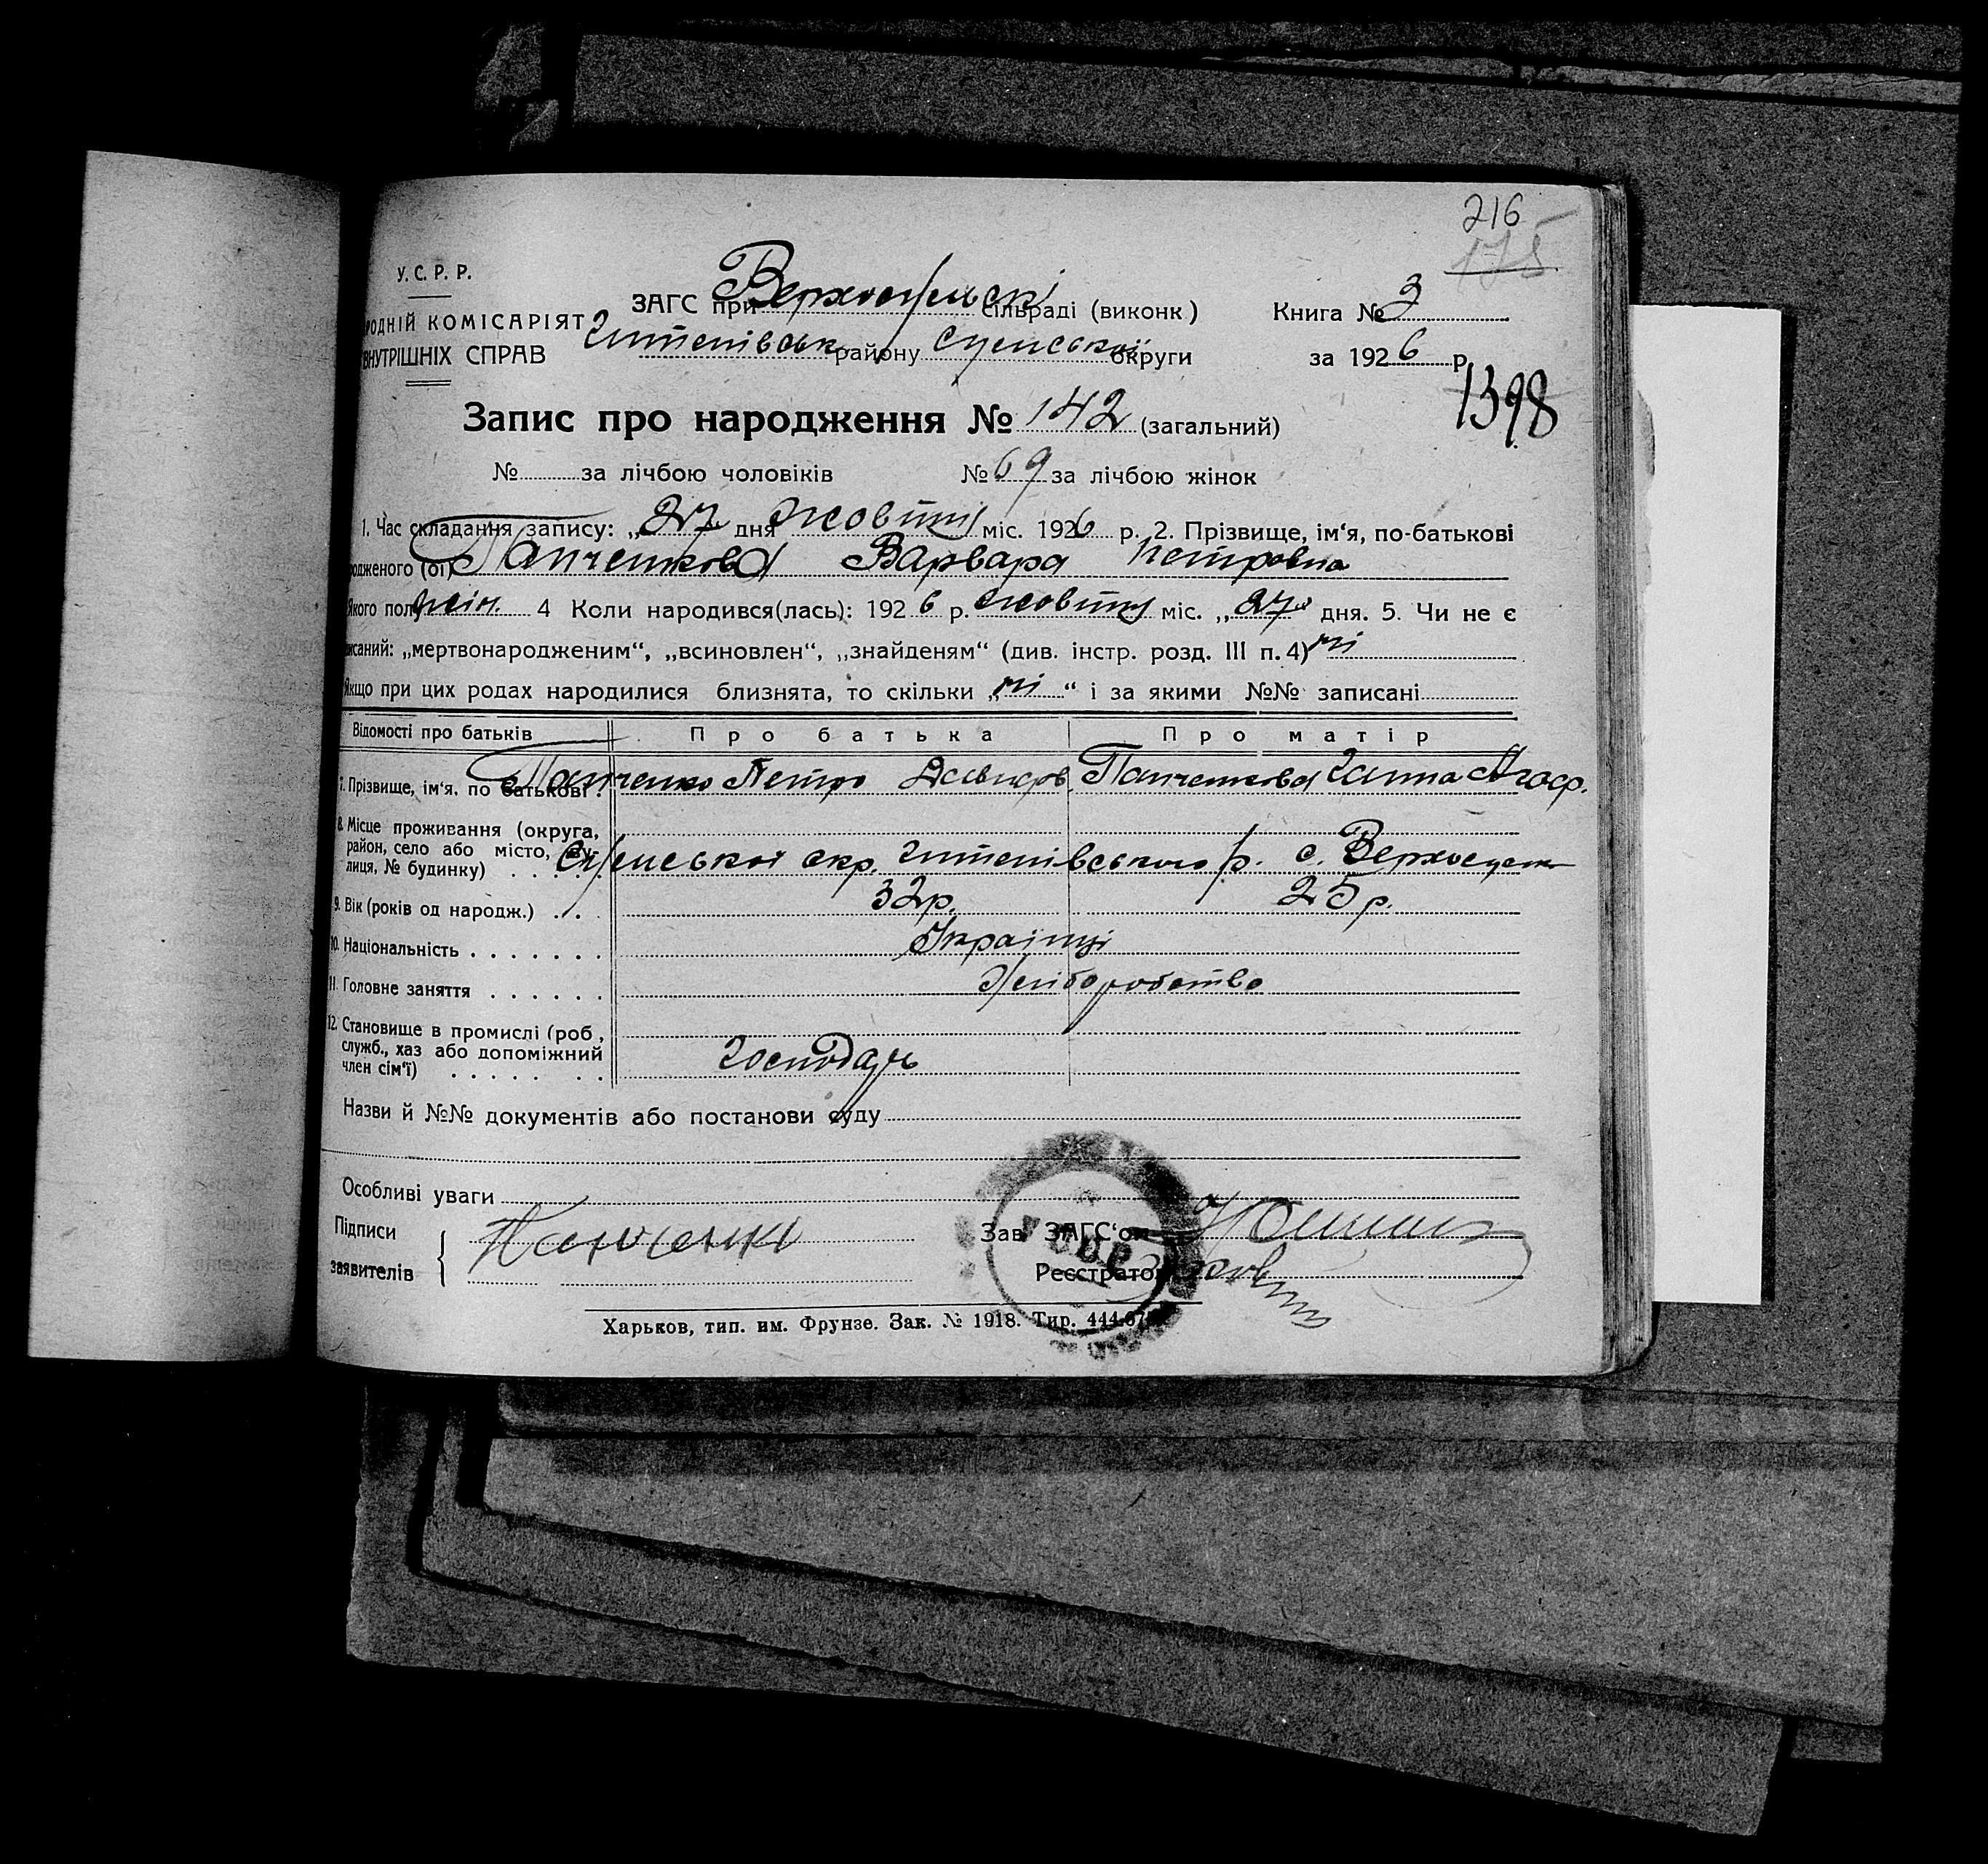 216
175
У. С. Р. Р.
ЗАГС при Верхосульскі сільраді (виконк) Книга № 3
РОДНІЙ КОМІСАРІЯТ
ВНУТРІШНІХ СПРАВ Штепівськ. району Сумської округи за 1926 р.
1398
Запис про народження № 142 (загальний)
№ за лічбою чоловіків № 69 за лічбою жінок
1. Час складання запису: „27“ дня жовтня міс. 1926 р. 2. Прізвище, ім‘я, по-батькові
родженого (ої) Панченкова Варвара Петровна
Якого полу жін. 4 Коли народився(лась): 1926 р. жовтня міс. „27“ дня. 5. Чи не є
писаний: „мертвонародженим“, „всиновлен“, „знайденям“ (див. інстр. розд. III п. 4) ні
Якщо при цих родах народилися близнята, то скільки „ні“ і за якими №№ записані
Відомості про батьків Про батька Про матір
7. Прізвище, ім‘я, по батькові. Панченко Петро Давидов. Панченкова Ганна Агаф.
8. Місце проживання (округа,
район, село або місто, ву-
лиця, № будинку) Сумської окр. Штепівського р. с. Верхосулк
9. Вік (років од народж.) 32р. 25р.
10. Національність Українці
11. Головне заняття Хліборобство
12. Становище в промислі (роб,
служб., хаз або допоміжний
член сім‘ї) Господарь
Назви й №№ документів або постанови суду
Особливі уваги
Підписи Панченко Зав. ЗАГС‘ом
заявителів Реєстратор
Харьков, тип. им. Фрунзе. Зак. № 1918. Тир. 444.67